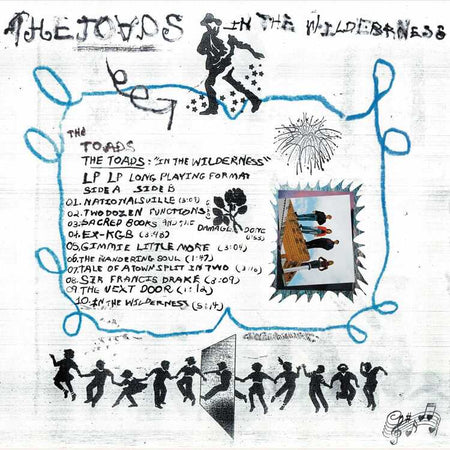 THE TOADS IN THE WILDERNESS
THE
TOADS
THE TOADS: "IN THE WILDERNESS"
LP LP LONG PLAYING FORMAT
SIDE A SIDE B
01. NATIONALSVILLE (3:09)
02. TWO DOZEN FUNCTIONS
03. SACRED BOOKS AND THE DAMAGE DONE
04. EX-KGB (3:40)
05. GIMMIE LITTLE MORE (3:04)
06. THE WANDERING SOUL (1:47)
07. TALE OF A TOWN SPLIT IN TWO
08. SIR FRANCIS DRAKE (3:09)
09. THE NEXT DOOR (1:12)
10. IN THE WILDERNESS (5:14)